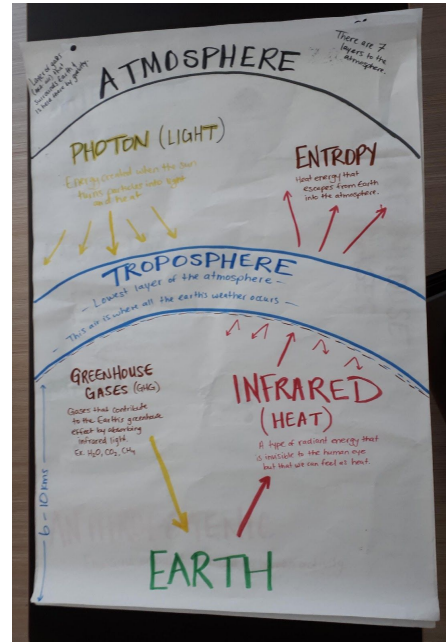 Layer of gases
that
surrounds Earth &
is held in place by gravity.
There are 7
layers to the
atmosphere.
ATMOSPHERE
PHOTON (LIGHT)
Energy created when the sun
turns particles into light
and heat
ENTROPY
Heat energy that
escapes from Earth
into the atmosphere.
TROPOSPHERE
- Lowest layer of the atmosphere -
- This air is where all the earth's weather occurs -
GREENHOUSE
GASES (GHG)
Gases that contribute
to the Earth's greenhouse
effect by absorbing
infrared light.
Ex. H₂O, CO₂, CH₄
INFRARED
(HEAT)
A type of radiant energy that
is invisible to the human eye
but that we can feel as heat.
6-10 kms
EARTH